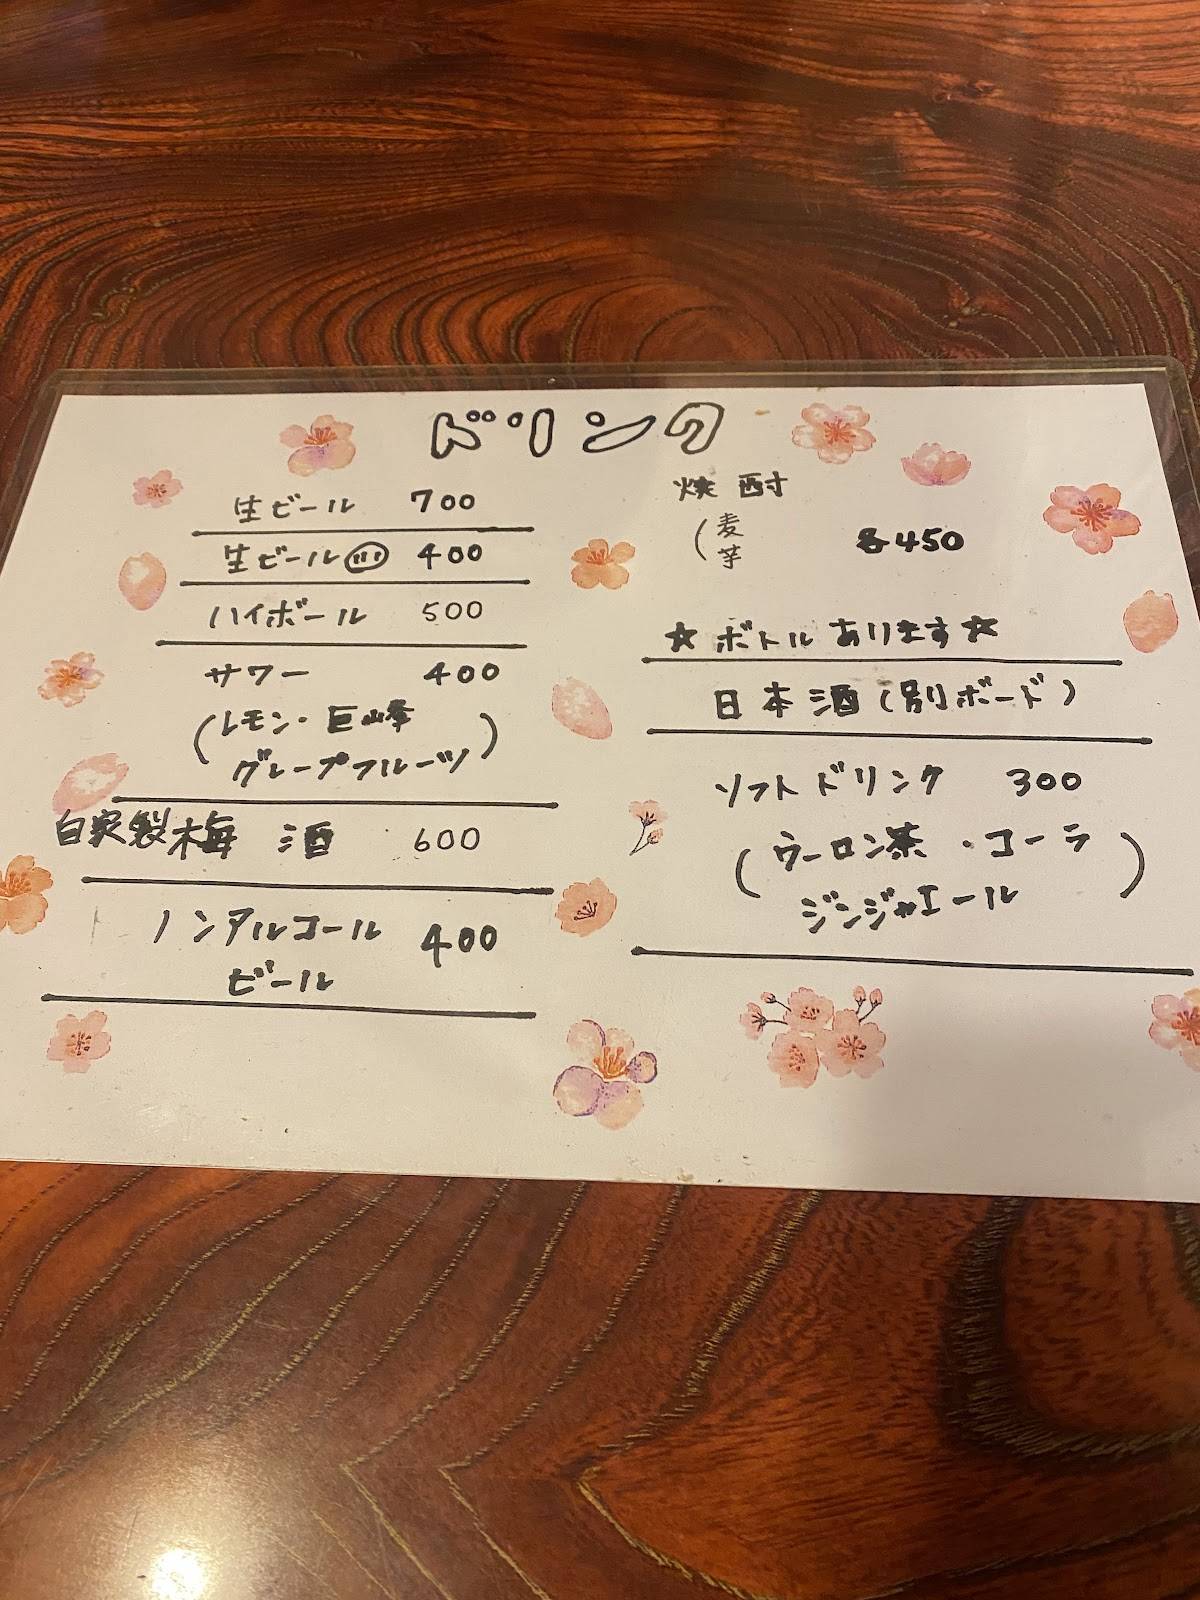 ドリンク
生ビール 700
生ビール(小) 400
ハイボール 500
サワー 400
(レモン・巨峰
グレープフルーツ)
自家製梅酒 600
ノンアルコール 400
ビール
焼酎
(麦
芋 各450
☆ボトルあります☆
日本酒(別ボード)
ソフトドリンク 300
(ウーロン茶・コーラ
ジンジャエール)